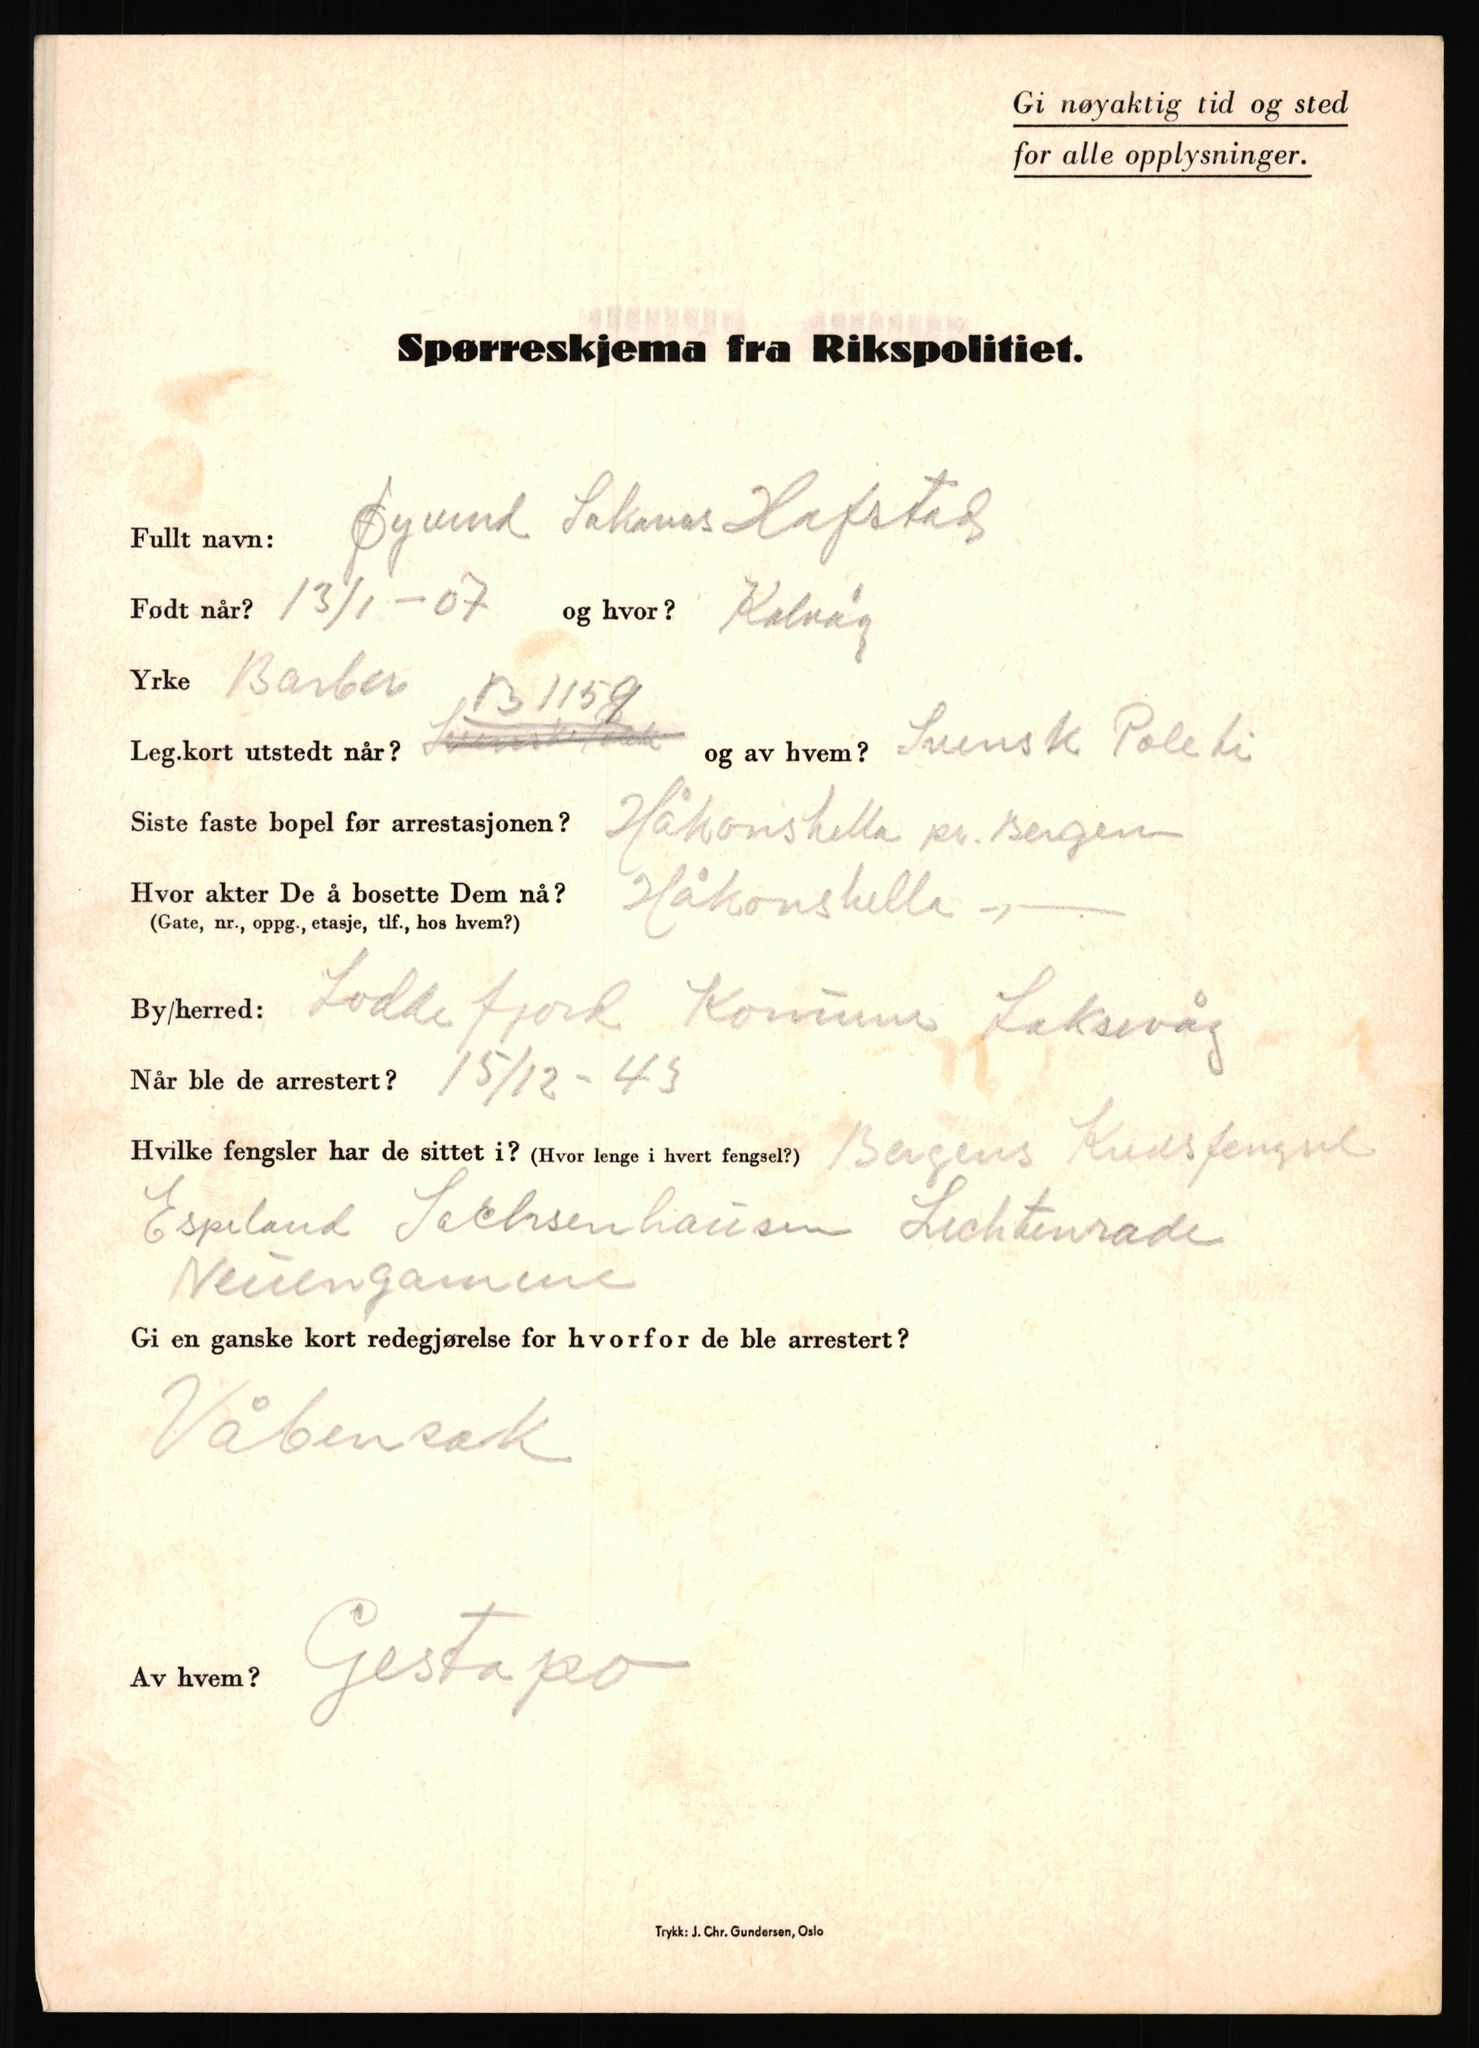 Gi nøyaktig tid og sted
for alle opplysninger.
Spørreskjema fra Rikspolitiet.
Fullt navn: Øyvind Sakarias Hafstad
Født når? 13/1-07 og hvor? Kalvåg
Yrke Barber
B 1159
Leg.kort utstedt når? og av hvem? Svensk Poleti
Siste faste bopel før arrestasjonen? Håkonshella pr. Bergen
Hvor akter De å bosette Dem nå? Håkonshella -,,-
(Gate, nr., oppg., etasje, tlf., hos hvem?)
By/herred: Loddefjord Komune Laksevåg
Når ble de arrestert? 15/12-43
Hvilke fengsler har de sittet i? (Hvor lenge i hvert fengsel?) Bergens Kretsfengsel
Espeland Sachsenhausen Lichtenrade
Neuengamme
Gi en ganske kort redegjørelse for hvorfor de ble arrestert?
Våbensak
Av hvem? Gestapo
Trykk: J. Chr. Gundersen, Oslo